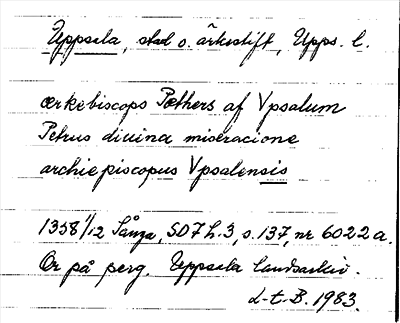 Uppsala, stad o. ärkestift, Upps. l.
ærkebiscops Pæthers af Vpsalum
Petrus diuina miseracione
archiepiscopus Vpsalensis
1358 1/12 Sånga, SD 7 h. 3, s. 137, nr 6022 a.
Or på perg. Uppsala landsarkiv.
L-t. B. 1983.